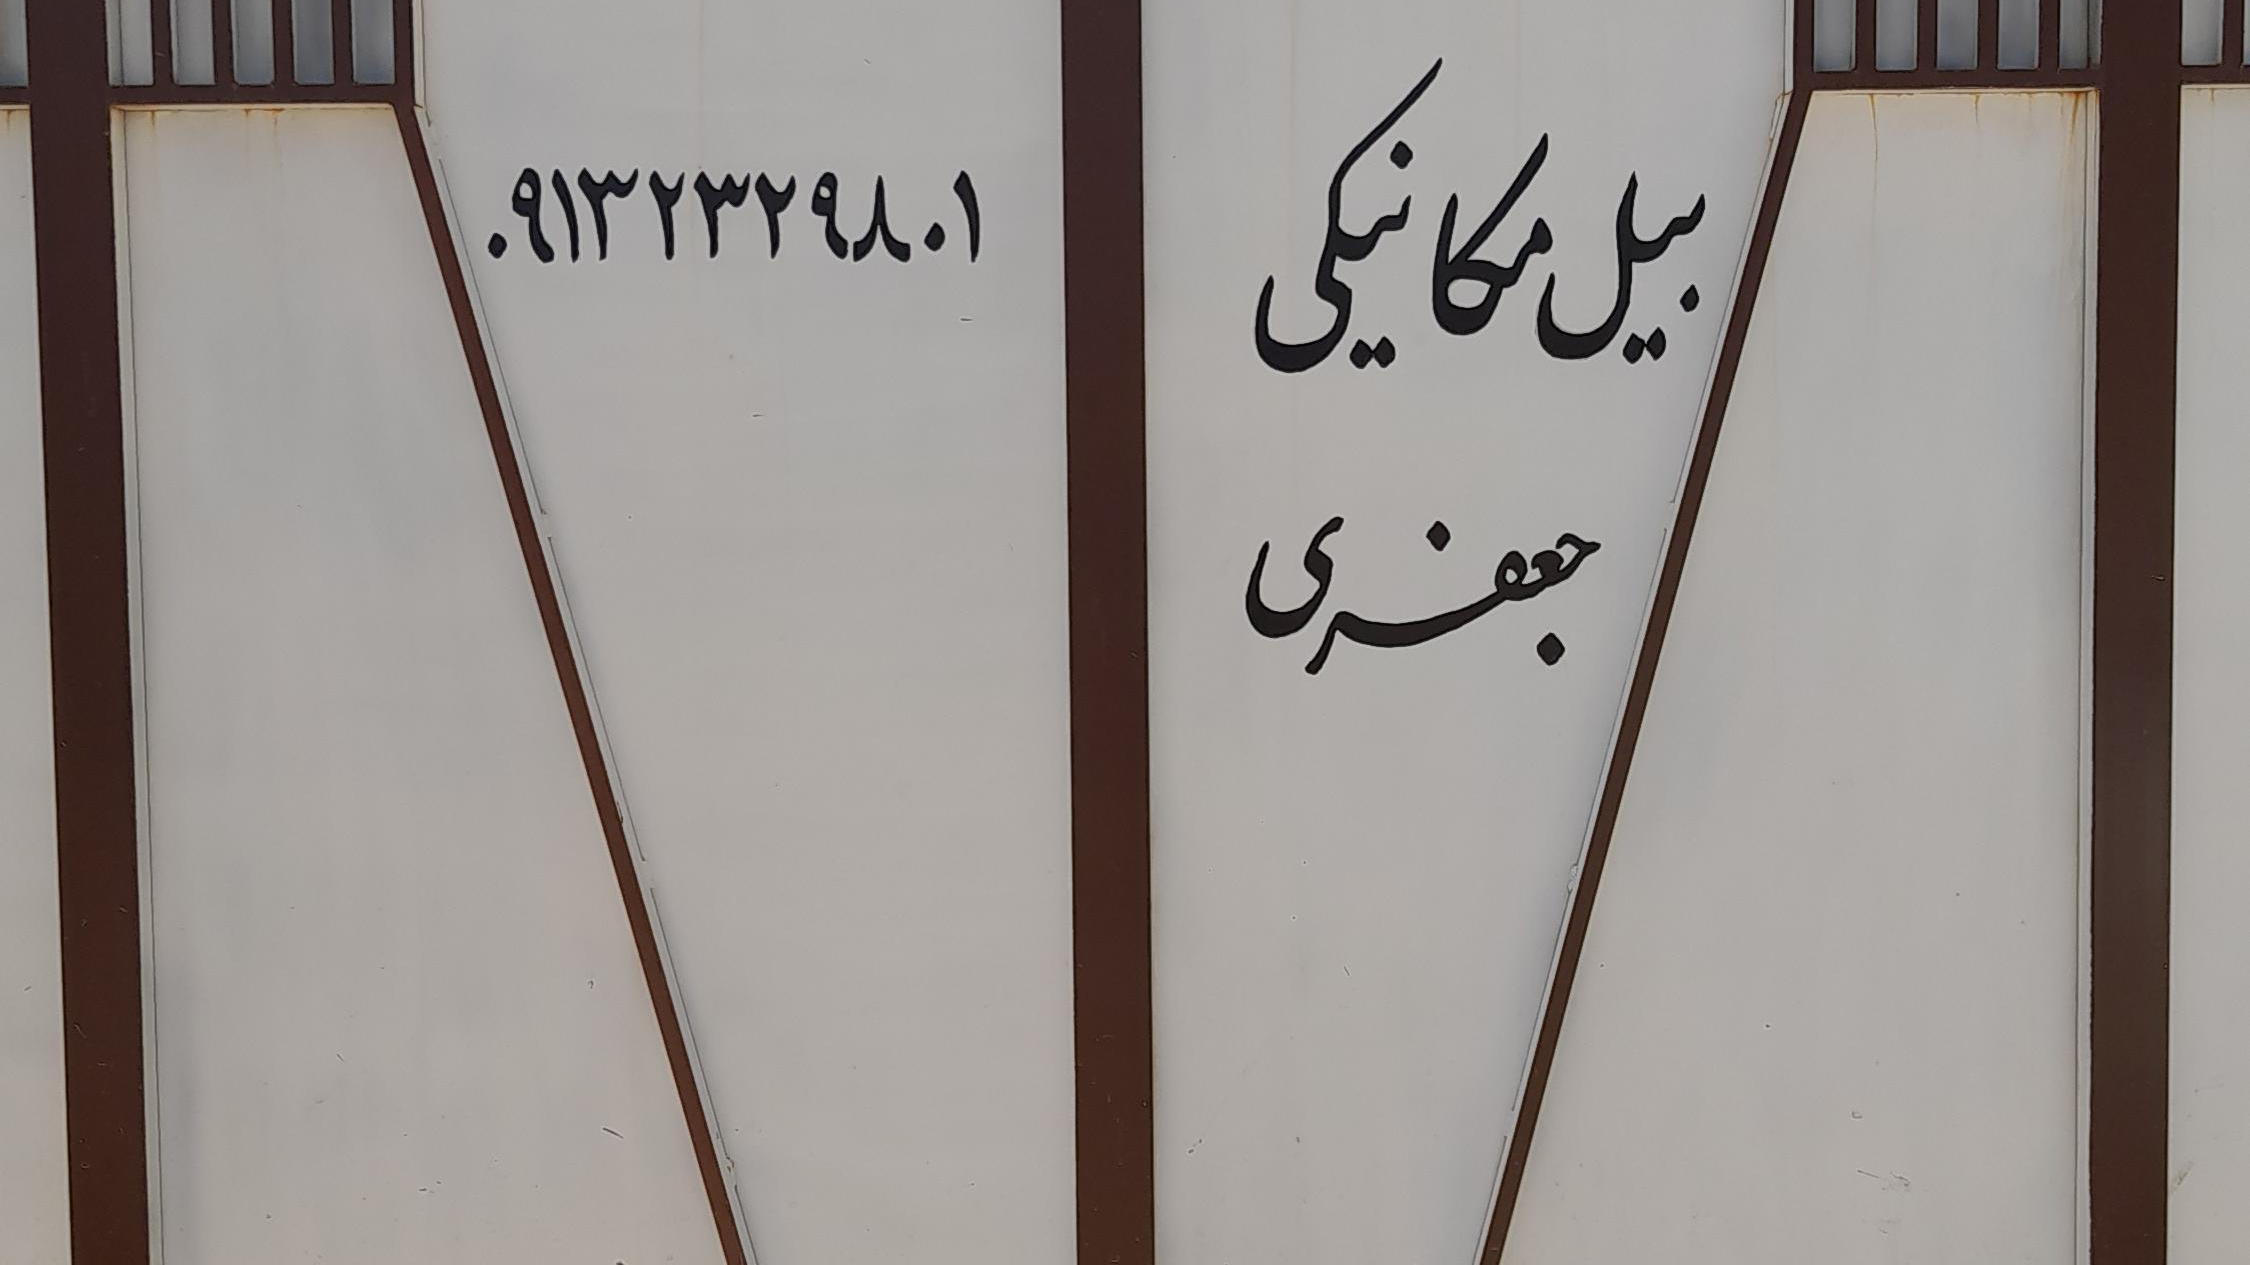 بیل مکانیکی
جعفری
۰۹۱۳۲۳۲۹۸۰۱